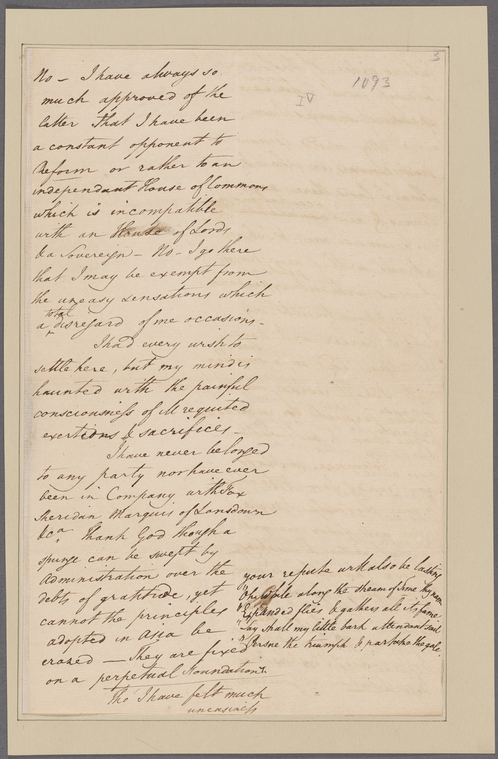 3
1093
IV
No – I have always so
much approved of the
latter that I have been
a constant opponent to
Reform or rather to an
independant House of Commons
which is incompatible
with an House of Lords
& a Sovereign – No – I go there
that I may be exempt from
the uneasy sensations which
total
a disregard of me occasions –
I had every wish to
settle here, but my mind is
haunted with the painful
consciousness of ill requited
exertions & sacrifices –
I have never belonged
to any party nor have ever
been in Company with Fox
Sheridan Marquis of Lansdown
&ca. Thank God though a
spunge can be swept by
Administration over the
debts of gratitude, yet
cannot the principles
adopted in Asia be
erased – They are fixed
on a perpetual foundation.
Tho I have felt much
uneasiness
your repute will also be lasting
"Oh while along the stream of Time thy name
"Expanded flies & gathers all its fame
"Say shall my little bark attendant sail
"Persue the triumph & partake the gale.